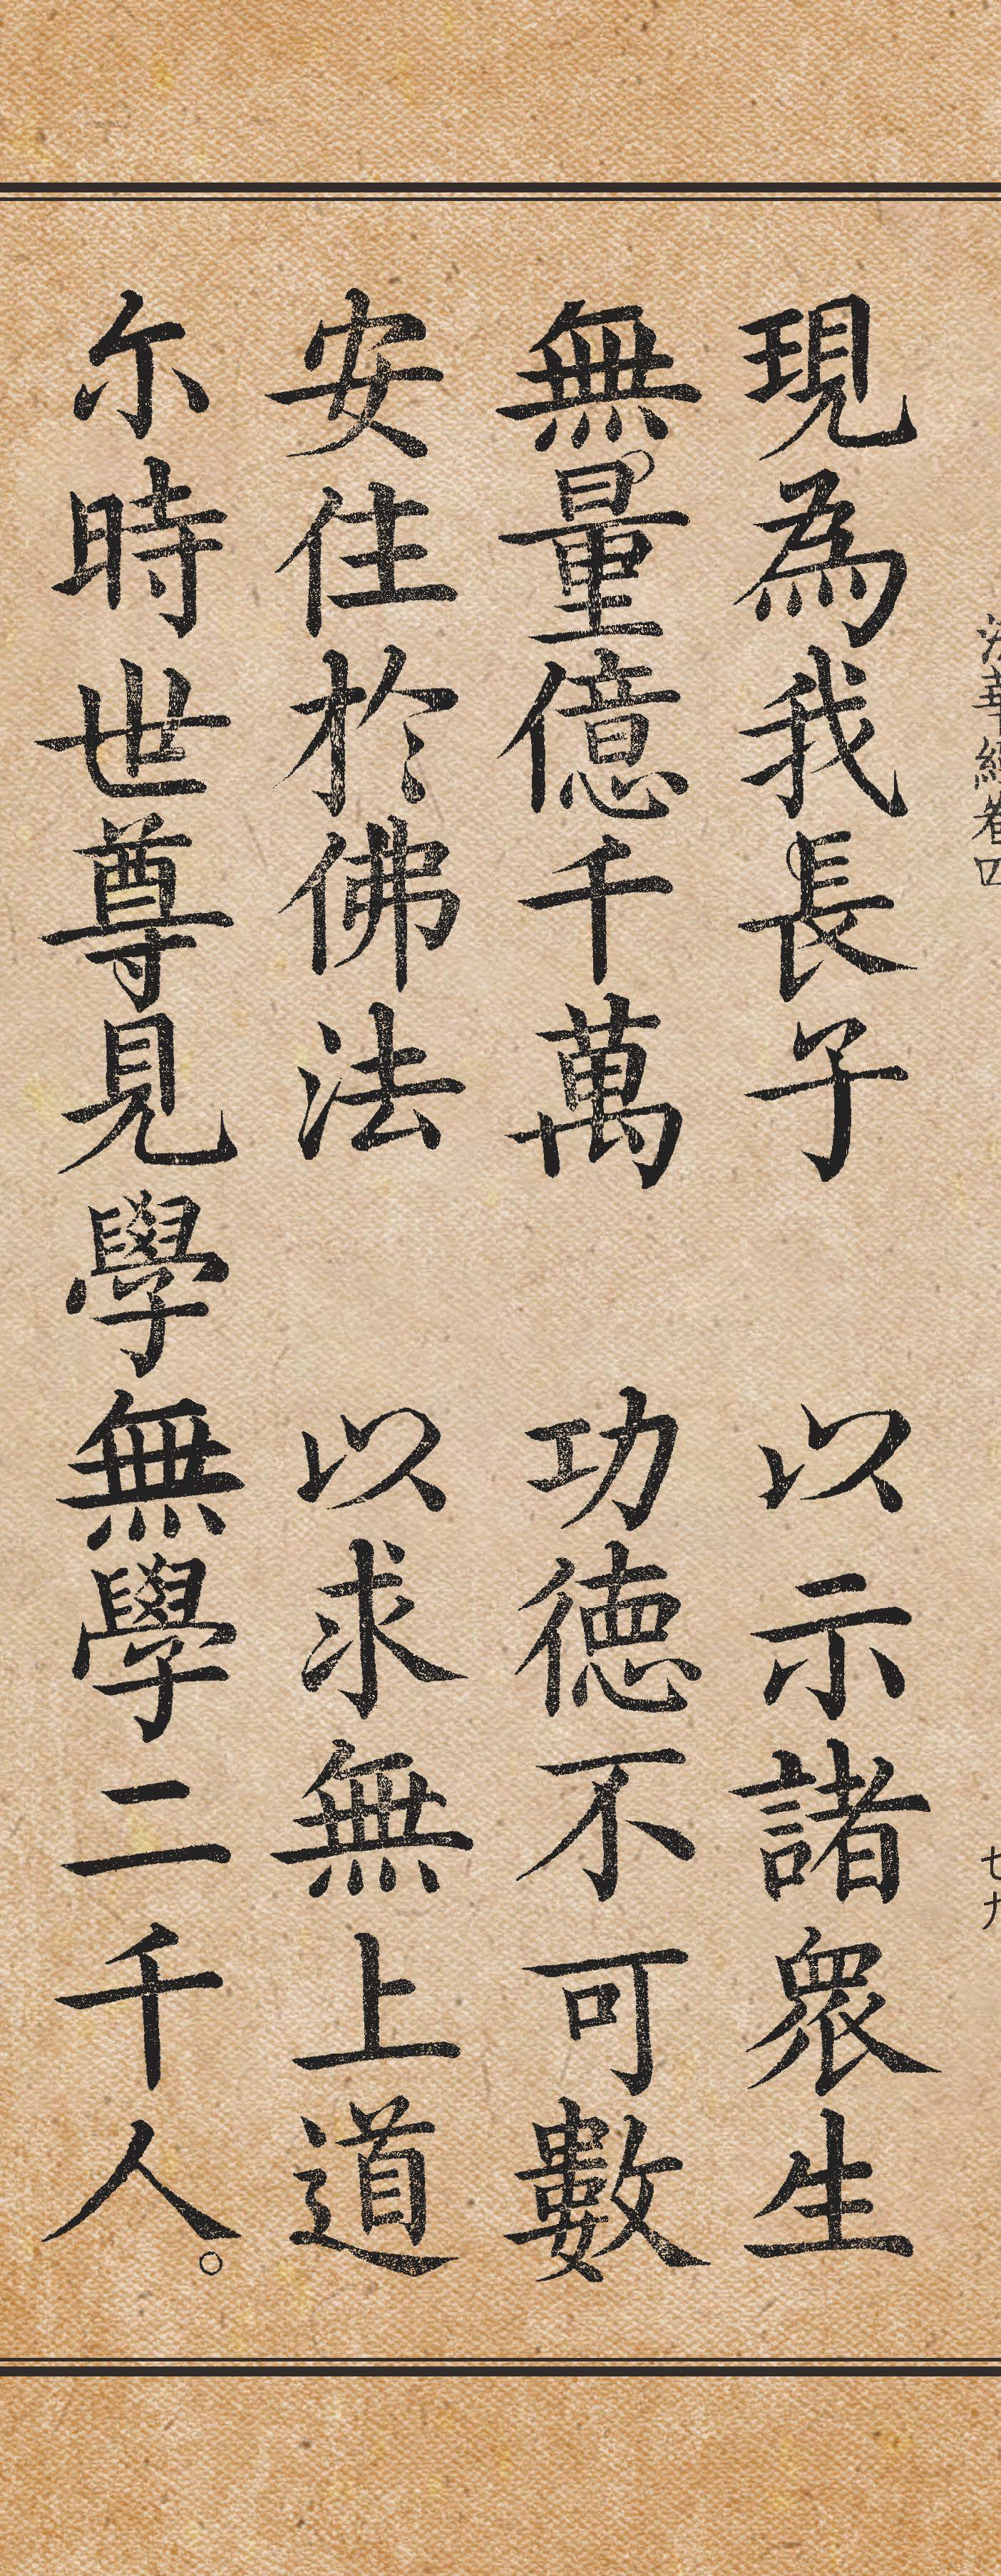 法華經卷四 七九
現為我長子 以示諸眾生
無量億千萬 功德不可數
安住於佛法 以求無上道
尒時世尊見學無學二千人。